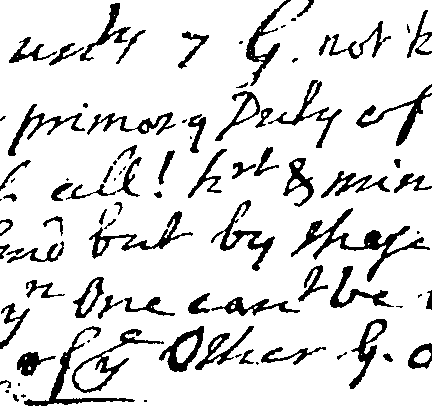 usly 7 G. not k
primary Duty of
all! hrt & min
and but by these
yn One cant be
of ye Other G. o